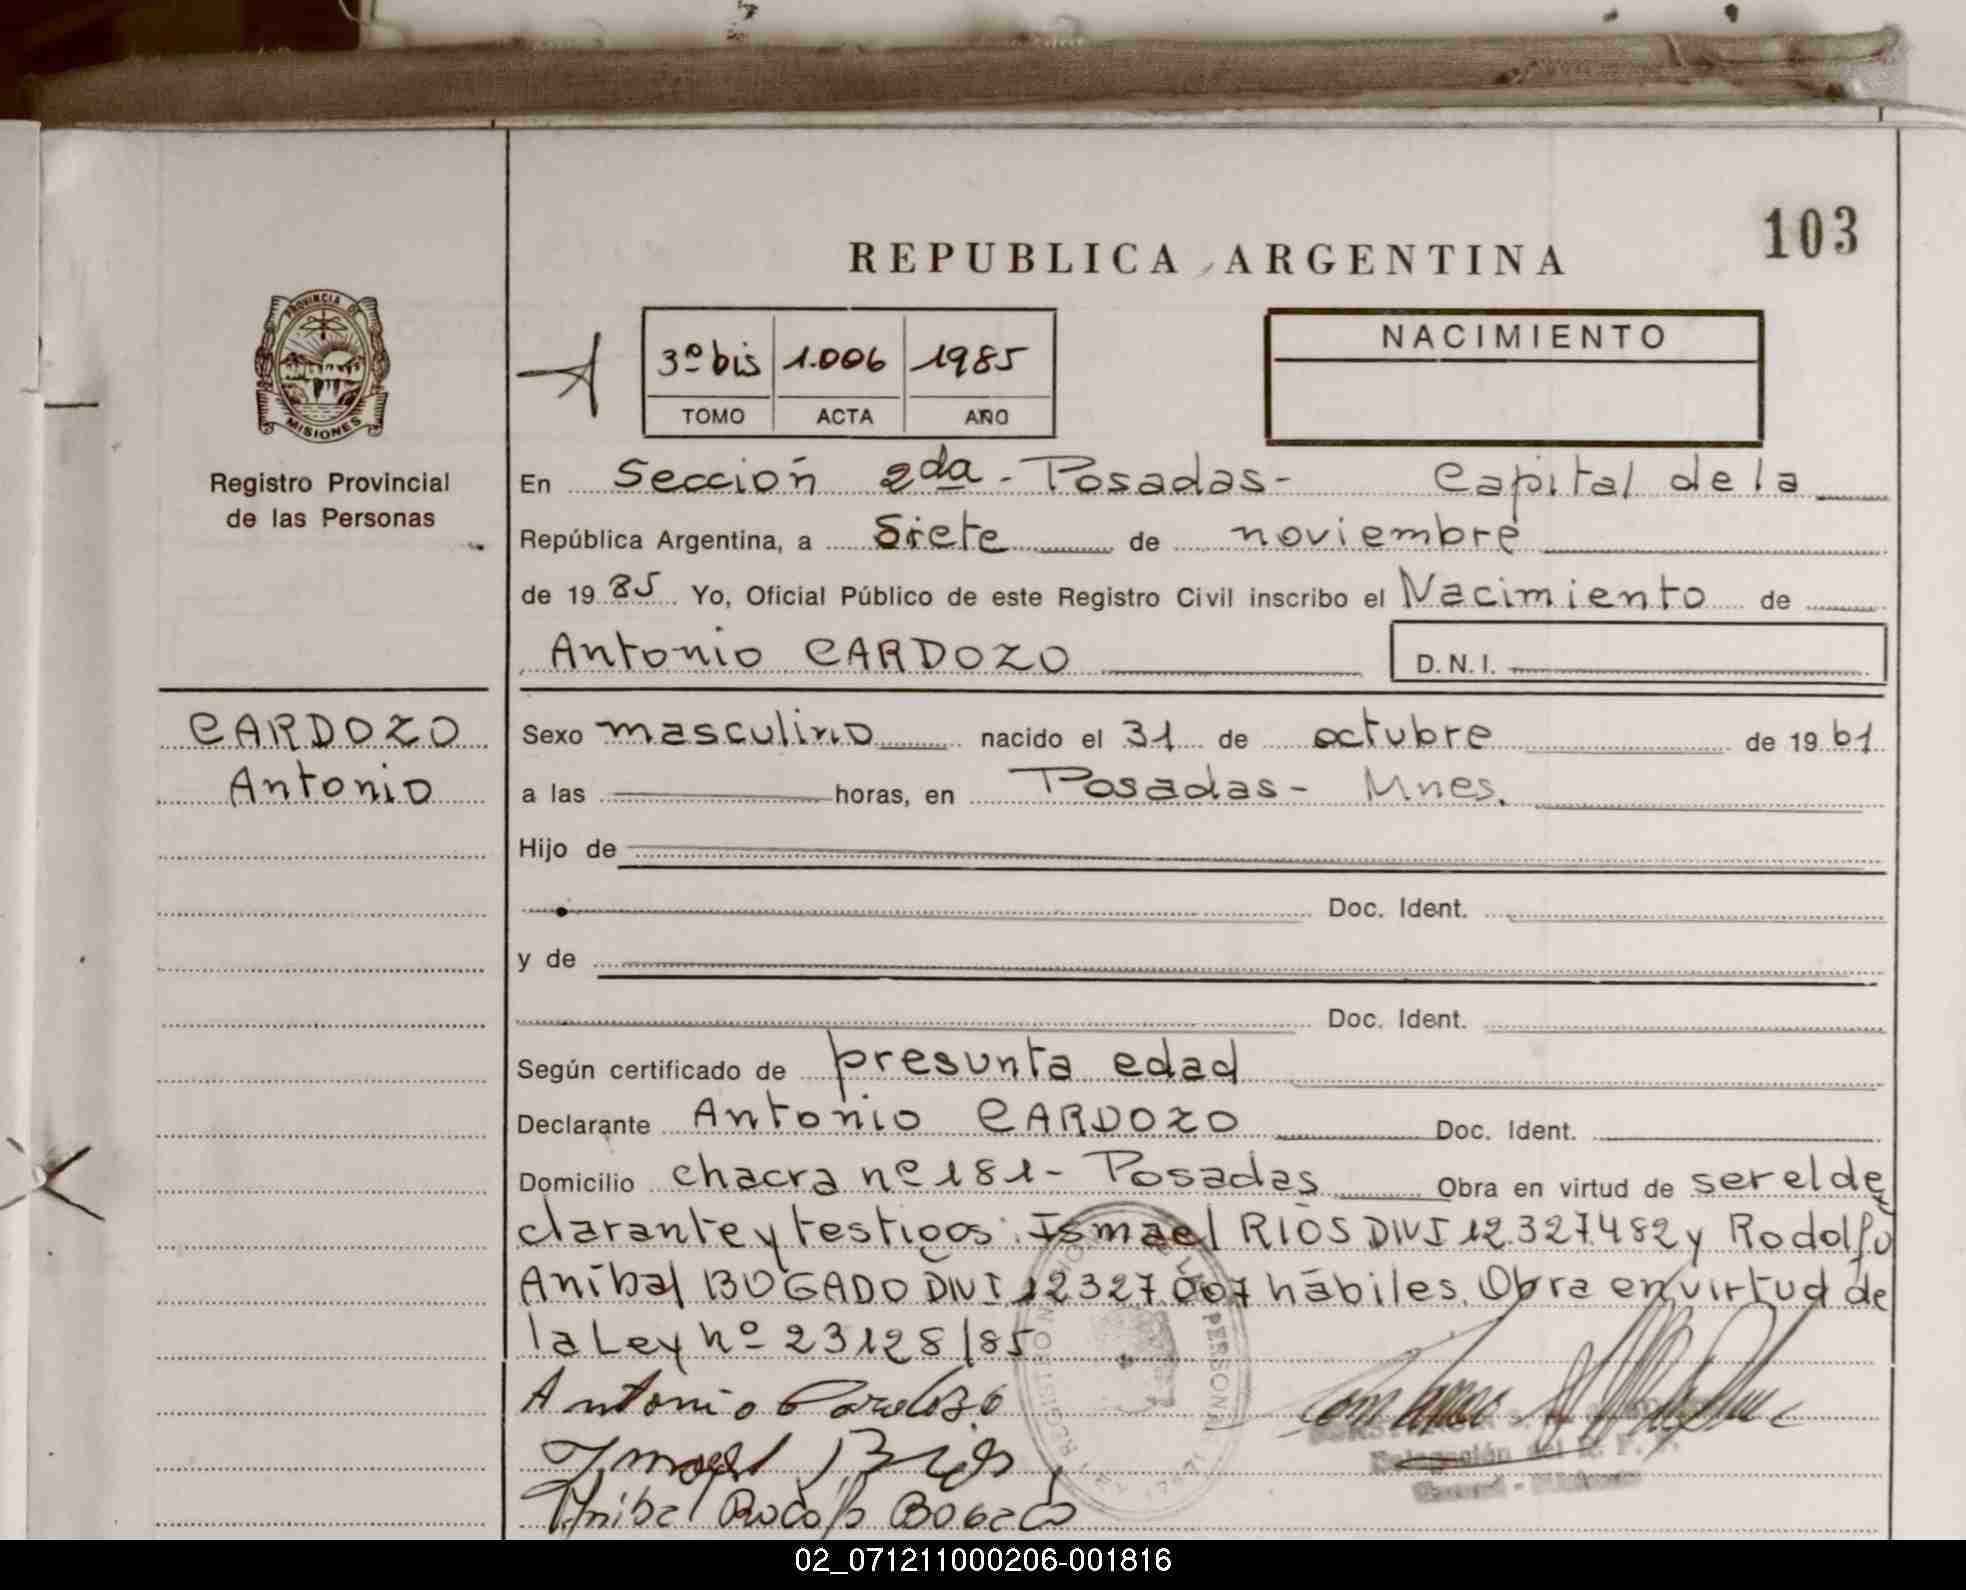 103
REPUBLICA ARGENTINA
PROVINCIA DE
MISIONES
Registro Provincial
de las Personas
3º bis 1.006 1985
TOMO ACTA AÑO
NACIMIENTO
En Sección 2da - Posadas - Capital de la
República Argentina, a Siete de noviembre
de 1985 Yo, Oficial Público de este Registro Civil inscribo el Nacimiento de
Antonio CARDOZO D.N.I.
CARDOZO
Antonio
Sexo masculino nacido el 31 de octubre de 1961
a las horas, en Posadas - Mnes.
Hijo de
Doc. Ident.
y de
Doc. Ident.
Según certificado de presunta edad
Declarante Antonio CARDOZO Doc. Ident.
Domicilio chacra nº 181 - Posadas Obra en virtud de ser el de
clarante y testigos: Ismael RIOS DNI 12.327.482 y Rodolfo
Aníbal BOGADO DNI 12327007 hábiles. Obra en virtud de
la Ley nº 23128/85
Antonio Cardozo
Ismael Rios
Anibal Rodolfo Bogado
02_071211000206-001816